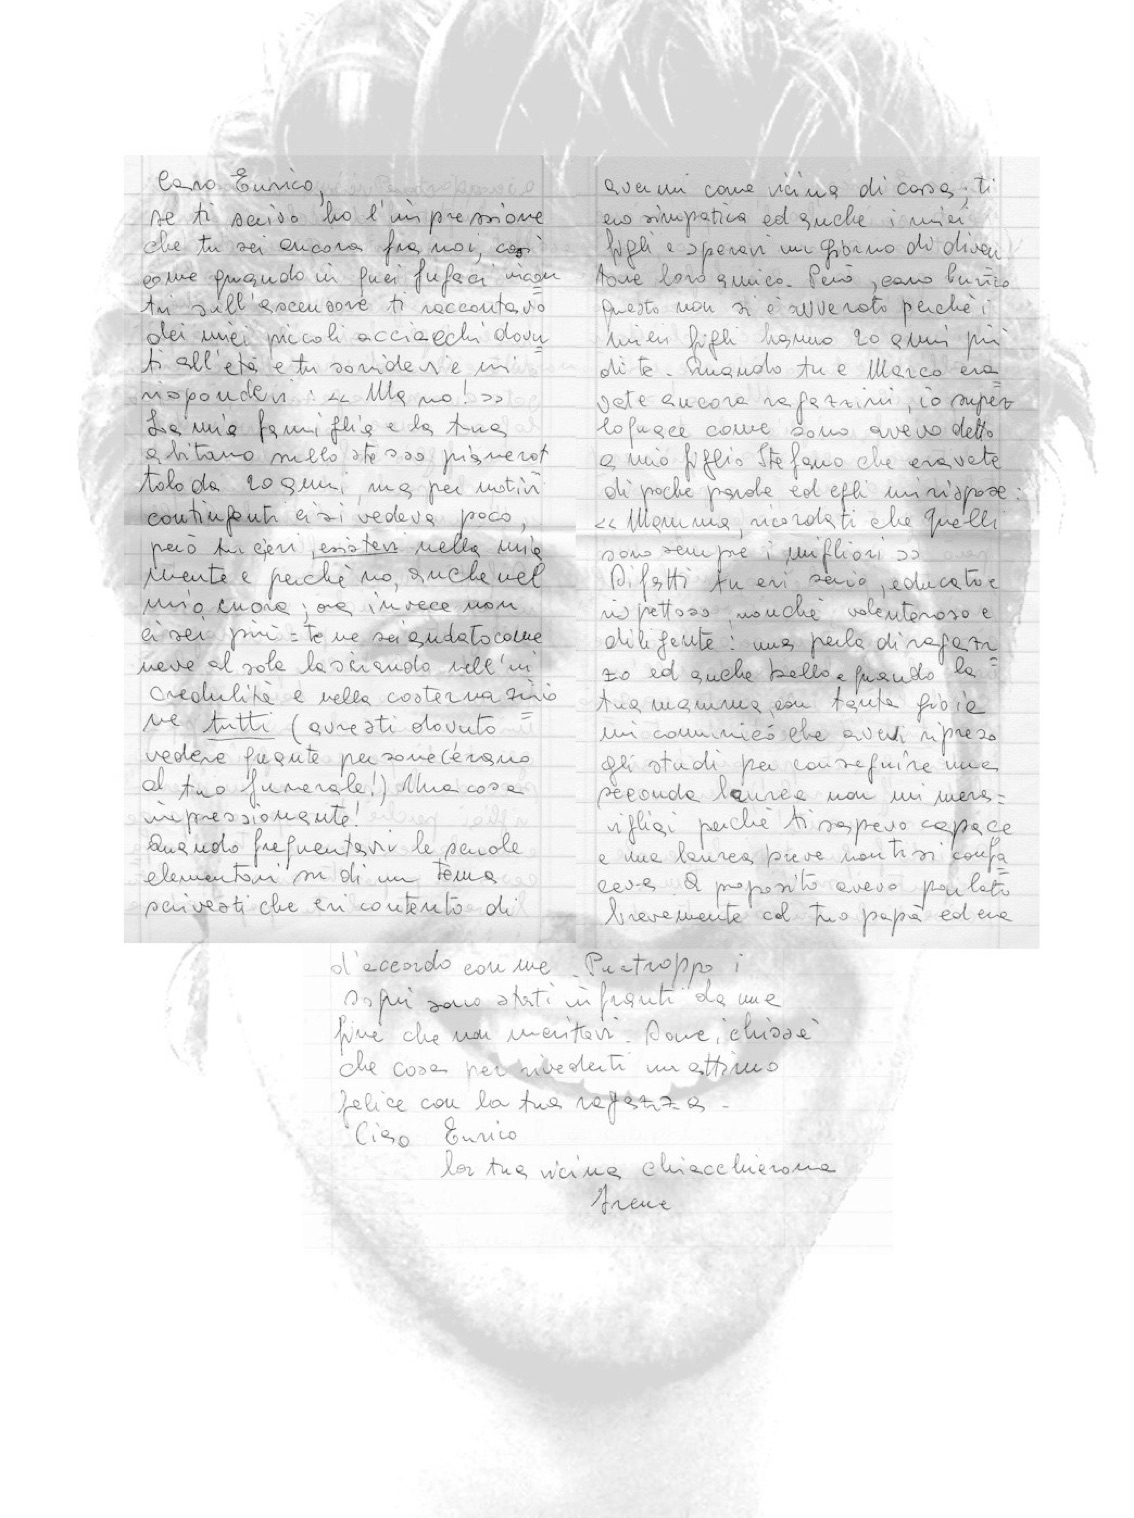 Caro Enrico,
se ti scrivo ho l'impressione
che tu sei ancora fra noi, così
come quando in quei fugaci incon=
tri sull'ascensore ti raccontavo
dei miei piccoli acciacchi dovu=
ti all'età e tu sorridevi e mi
rispondevi: << Ma no! >>
La mia famiglia e la tua
abitano nello stesso pianerot=
tolo da 20 anni, ma per motivi
contingenti ci si vedeva poco,
però tu c'eri, esistevi nella mia
mente e perchè no, anche nel
mio cuore; ora invece non
ci sei più = te ne sei andato come
neve al sole lasciando nell'in
credulità e nella costernazio=
ne tutti (avresti dovuto
vedere quante persone c'erano
al tuo funerale!) Una cosa
impressionante!
Quando frequentavi le scuole
elementari su di un tema
scrivesti che eri contento di
avermi come vicina di casa; ti
ero simpatica ed anche i miei
figli e speravi un giorno di diven
tare loro amico. Però, caro Enrico
questo non si è avverato perchè i
miei figli hanno 20 anni più
di te. Quando tu e Marco era=
vate ancora ragazzini, io super
loquace come sono avevo detto
a mio figlio Stefano che eravate
di poche parole ed egli mi rispose:
<< Mamma, ricordati che quelli
sono sempre i migliori >>
Difatti tu eri serio, educato e
rispettoso, nonchè volenteroso e
diligente: una perla di ragaz=
zo ed anche bello e quando la
tua mamma, con tanta gioia
mi comunicò che avevi ripreso
gli studi per conseguire una
seconda laurea non mi mera=
vigliai perchè ti sapevo capace
e una laurea breve non ti si confa=
ceva. A proposito avevo parlato
brevemente col tuo papà ed era
d'accordo con me. Purtroppo i
sogni sono stati infranti da una
fine che non meritavi. Dare, chissà
che cosa per rivederti un attimo
felice con la tua ragazza.
Ciao Enrico
la tua vicina chiacchierona
Irene